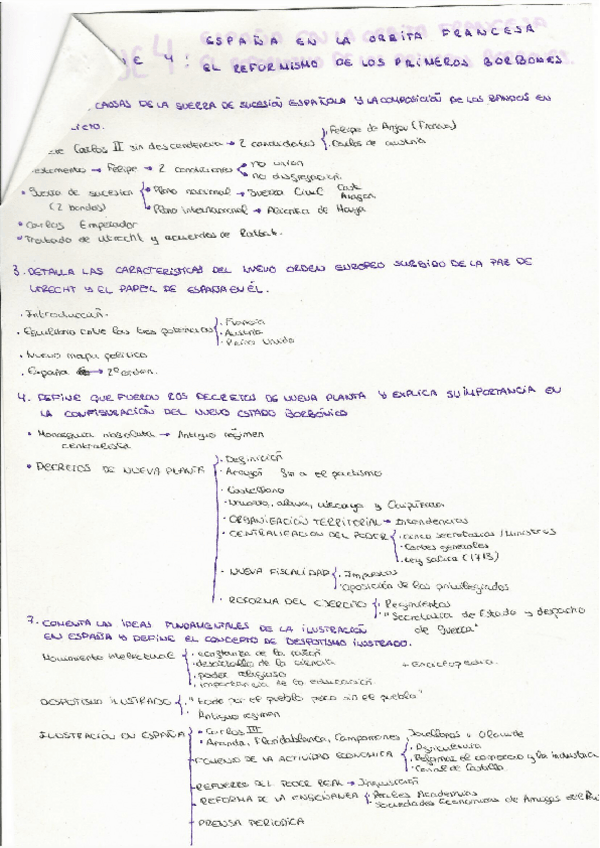 ESPAÑA EN LA ORBITA FRANCESA
4: EL REFORMISMO DE LOS PRIMEROS BORBONES
CAUSAS DE LA GUERRA DE SUCESIÓN ESPAÑOLA Y LA COMPOSICIÓN DE LOS BANDOS EN
Carlos II sin descendencia → 2 candidatos { Felipe de Anjou (Francia)
Carlos de Austria
→ Felipe → 2 condiciones no union
no disgregación
• Guerra de sucesión { Plano nacional → Guerra Civil Cast
Aragon
(2 bandos) Plano internacional → Alianza de Haya
• Carlos Emperador
• Tratado de Utrecht y acuerdos de
3. DETALLA LAS CARACTERISTICAS DEL NUEVO ORDEN EUROPEO SURGIDO DE LA PAZ DE
UTRECHT Y EL PAPEL DE ESPAÑA EN ÉL.
• Introducción
• Equilibrio entre las tres potencias { • Francia
• Austria
• Reino Unido
• Nuevo mapa politico
• España → 2º orden.
4. DEFINE QUE FUERON LOS DECRETOS DE NUEVA PLANTA Y EXPLICA SU IMPORTANCIA EN
LA CONFIGURACIÓN DEL NUEVO ESTADO BORBÓNICO
• Monarquia absoluta → Antiguo régimen
centralista
• DECRETOS DE NUEVA PLANTA { • Definición
• Aragón sin el pactismo
• Castellano
• Navarra, alava, vizcaya y Guipúzcoa
• ORGANIZACIÓN TERRITORIAL → Intendencias
• CENTRALIZACIÓN DEL PODER { • cinco secretarias / Ministros
• Cortes generales
• Ley salica (1713)
• NUEVA FISCALIDAD { • Impuestos
• oposición de los privilegiados
• REFORMA DEL EJERCITO { • Regimientos
• "Secretaria de Estado y despacho
de Guerra"
7. COMENTA LAS IDEAS FUNDAMENTALES DE LA ILUSTRACIÓN
EN ESPAÑA Y DEFINE EL CONCEPTO DE DESPOTISMO ILUSTRADO.
Movimiento intelectual { • confianza de la razón
• desarrollo de la ciencia + Enciclopedia.
• poder religioso
• importancia de la educación
DESPOTISMO ILUSTRADO { • "todo por el pueblo pero sin el pueblo"
Antiguo regimen
ILUSTRACIÓN EN ESPAÑA { • Carlos III
• Aranda, Floridablanca, Campomanes Jovellanos u Olavide
• FOMENTO DE LA ACTIVIDAD ECONOMICA { • Agricultura
• Reformas el comercio y la industria
• Canal de Castilla
• REFUERZO DEL PODER REAL → Inquisición
• REFORMA DE LA ENSEÑANZA { • Reales Academias
• Sociedades Economicas de Amigos del
• PRENSA PERIODICA